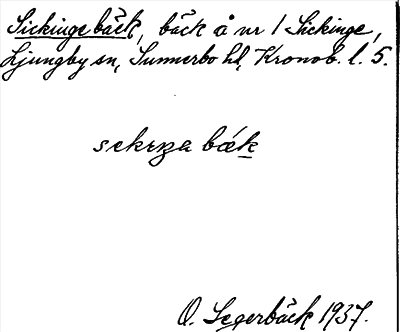 Sickinge bäck, bäck å nr 1 Sickinge,
Ljungby sn, Sunnerbo hd, Kronob. l. 5.
sekıŋa bæk
O. Segerbäck 1937.